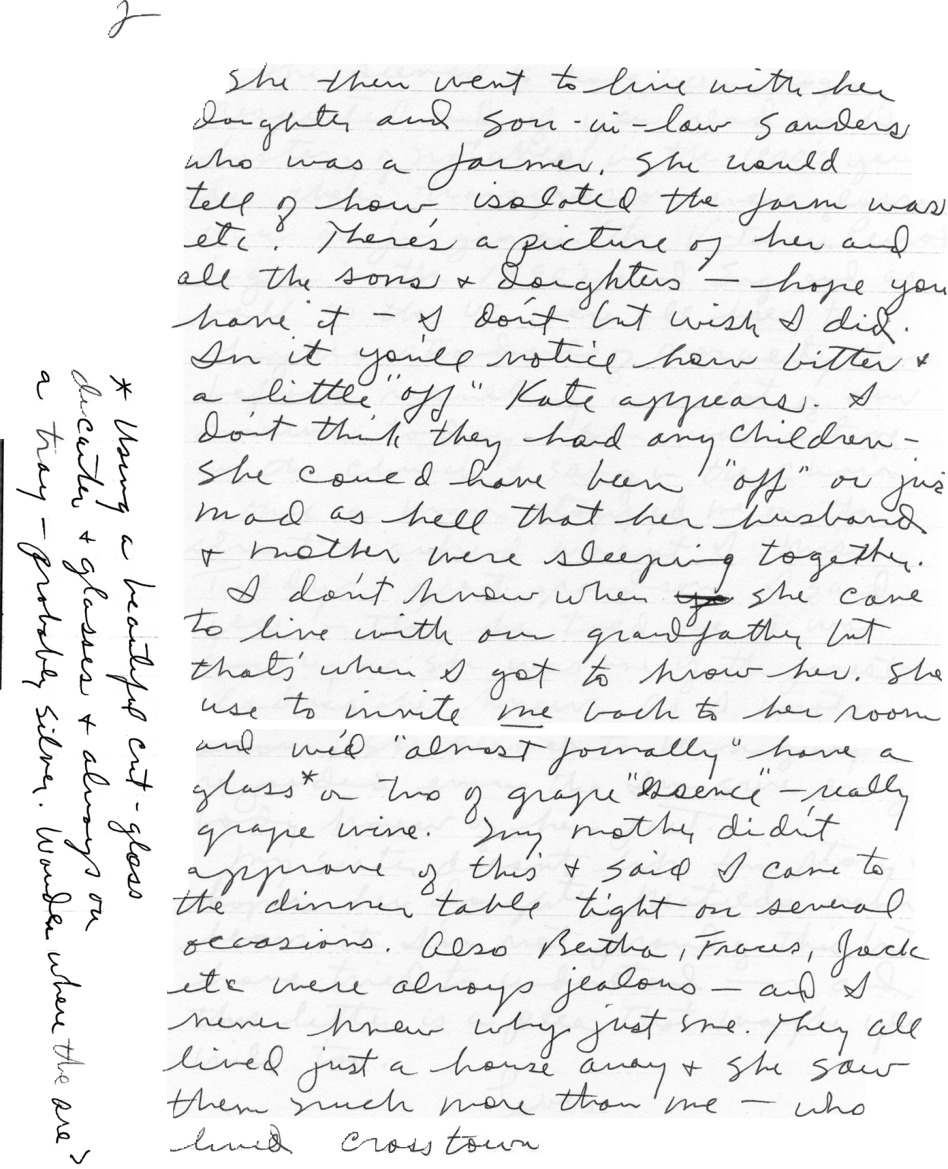 2
She then went to live with her
daughter and son-in-law Sanders
who was a farmer. She would
tell of how isolated the farm was
etc. There's a picture of her and
all the sons & daughters — hope you
have it — I don't but wish I did.
In it you'll notice how bitter &
a little "off" Kate appears. I
don't think they had any children —
she could have been "off" or jus
mad as hell that her husband
& mother were sleeping together.
I don't know when she came
to live with our grandfather but
that's when I got to know her. She
use to invite me back to her room
and we'd "almost formally" have a
glass* or two of grape "essence" — really
grape wine. My mother didn't
approve of this & said I came to
the dinner table tight on several
occasions. Also Bertha, Fraces, Jack
etc were always jealous — and I
never knew why just me. They all
lived just a house away & she saw
them much more than me — who
lived crosstown
* Using a beautiful cut-glass
ducanter & glasses & always on
a tray — probably silver. Wonder where the are?